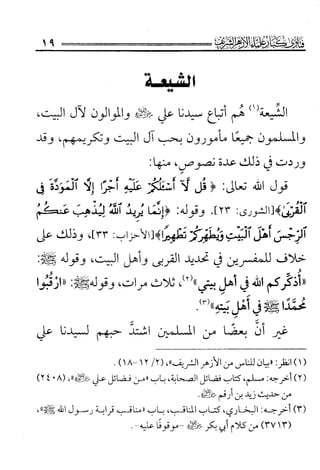 فتاوى كبار علماء الأزهر الشريف ١٩
الشيعة
الشِّيعة(١) هُم أتباع سيدنا علي ﵁ والموالون لآل البيت،
والمسلمون جميعًا مأمورون بحب آل البيت وتكريمهم، وقد
وردت في ذلك عدة نصوص، منها:
قول الله تعالى: ﴿قُل لَّآ أَسْـَٔلُكُمْ عَلَيْهِ أَجْرًا إِلَّا ٱلْمَوَدَّةَ فِى
ٱلْقُرْبَىٰ﴾[الشورى: ٢٣]. وقوله: ﴿إِنَّمَا يُرِيدُ ٱللَّهُ لِيُذْهِبَ عَنكُمُ
ٱلرِّجْسَ أَهْلَ ٱلْبَيْتِ وَيُطَهِّرَكُمْ تَطْهِيرًا﴾[الأحزاب: ٣٣]، وذلك على
خلاف للمفسرين في تحديد القربى وأهل البيت، وقوله ﷺ:
«أُذَكِّركم الله في أهل بيتي»(٢)، ثلاث مرات، وقوله ﷺ: «ارْقُبُوا
مُحمَّدًا ﷺ في أَهل بَيته»(٣).
غير أنَّ بعضًا من المسلمين اشتدَّ حبهم لسيدنا علي
(١) انظر: «بيان للناس من الأزهر الشريف»، (٢/ ١٢-١٨).
(٢) أخرجه: مسلم، كتاب فضائل الصحابة، باب «من فضائل علي ﵁»، (٢٤٠٨)
من حديث زيد بن أرقم ﵁.
(٣) أخرجه: البخاري، كتاب المناقب، باب «مناقب قرابة رسول الله ﷺ»،
(٣٧١٣) من كلام أبي بكر ﵁ -موقوفًا عليه-.